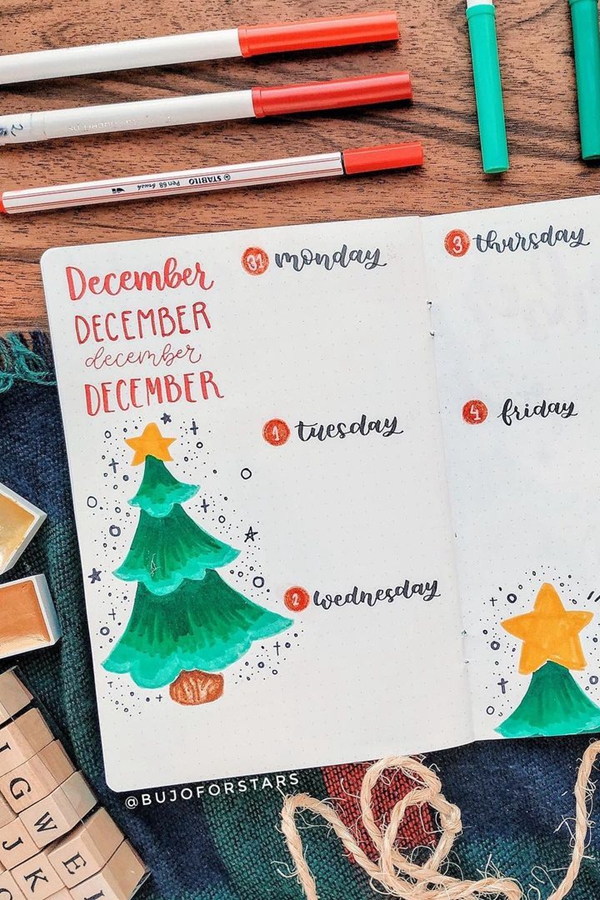 2
STABILO Pen 68 brush
December
DECEMBER
december
DECEMBER
31 monday
1 tuesday
2 wednesday
3 thursday
4 friday
@BUJOFORSTARS
I
G
W
E
J
K
L